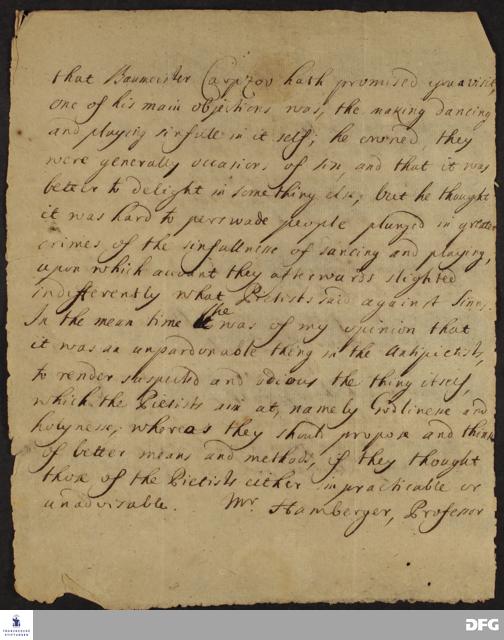 that Baumeister Carpzov hath promised you a visit,
one of his main objections was, the making dancing
and playing sinfull in it self; he owned, they
were generally occasions of sin, and that it was
better to delight in something else; but he thought
it was hard to perswade people plunged in greater
crimes of the sinfullnesse of dancing and playing,
upon which account they afterwards slighted
indifferently what Pietists said against Sins.
In the mean time he was of my opinion that
it was an unpardonable thing in the Antipietists,
to render suspected and odious the thing itself,
which the Pietists aim at, namely Godlinesse and
holynesse, whereas they should propose and think
of better means and methods, if they thought
those of the Pietists either impracticable or
unadvisable. Mr Hamberger, Professor
FRANCKESCHE
STIFTUNGEN
DFG